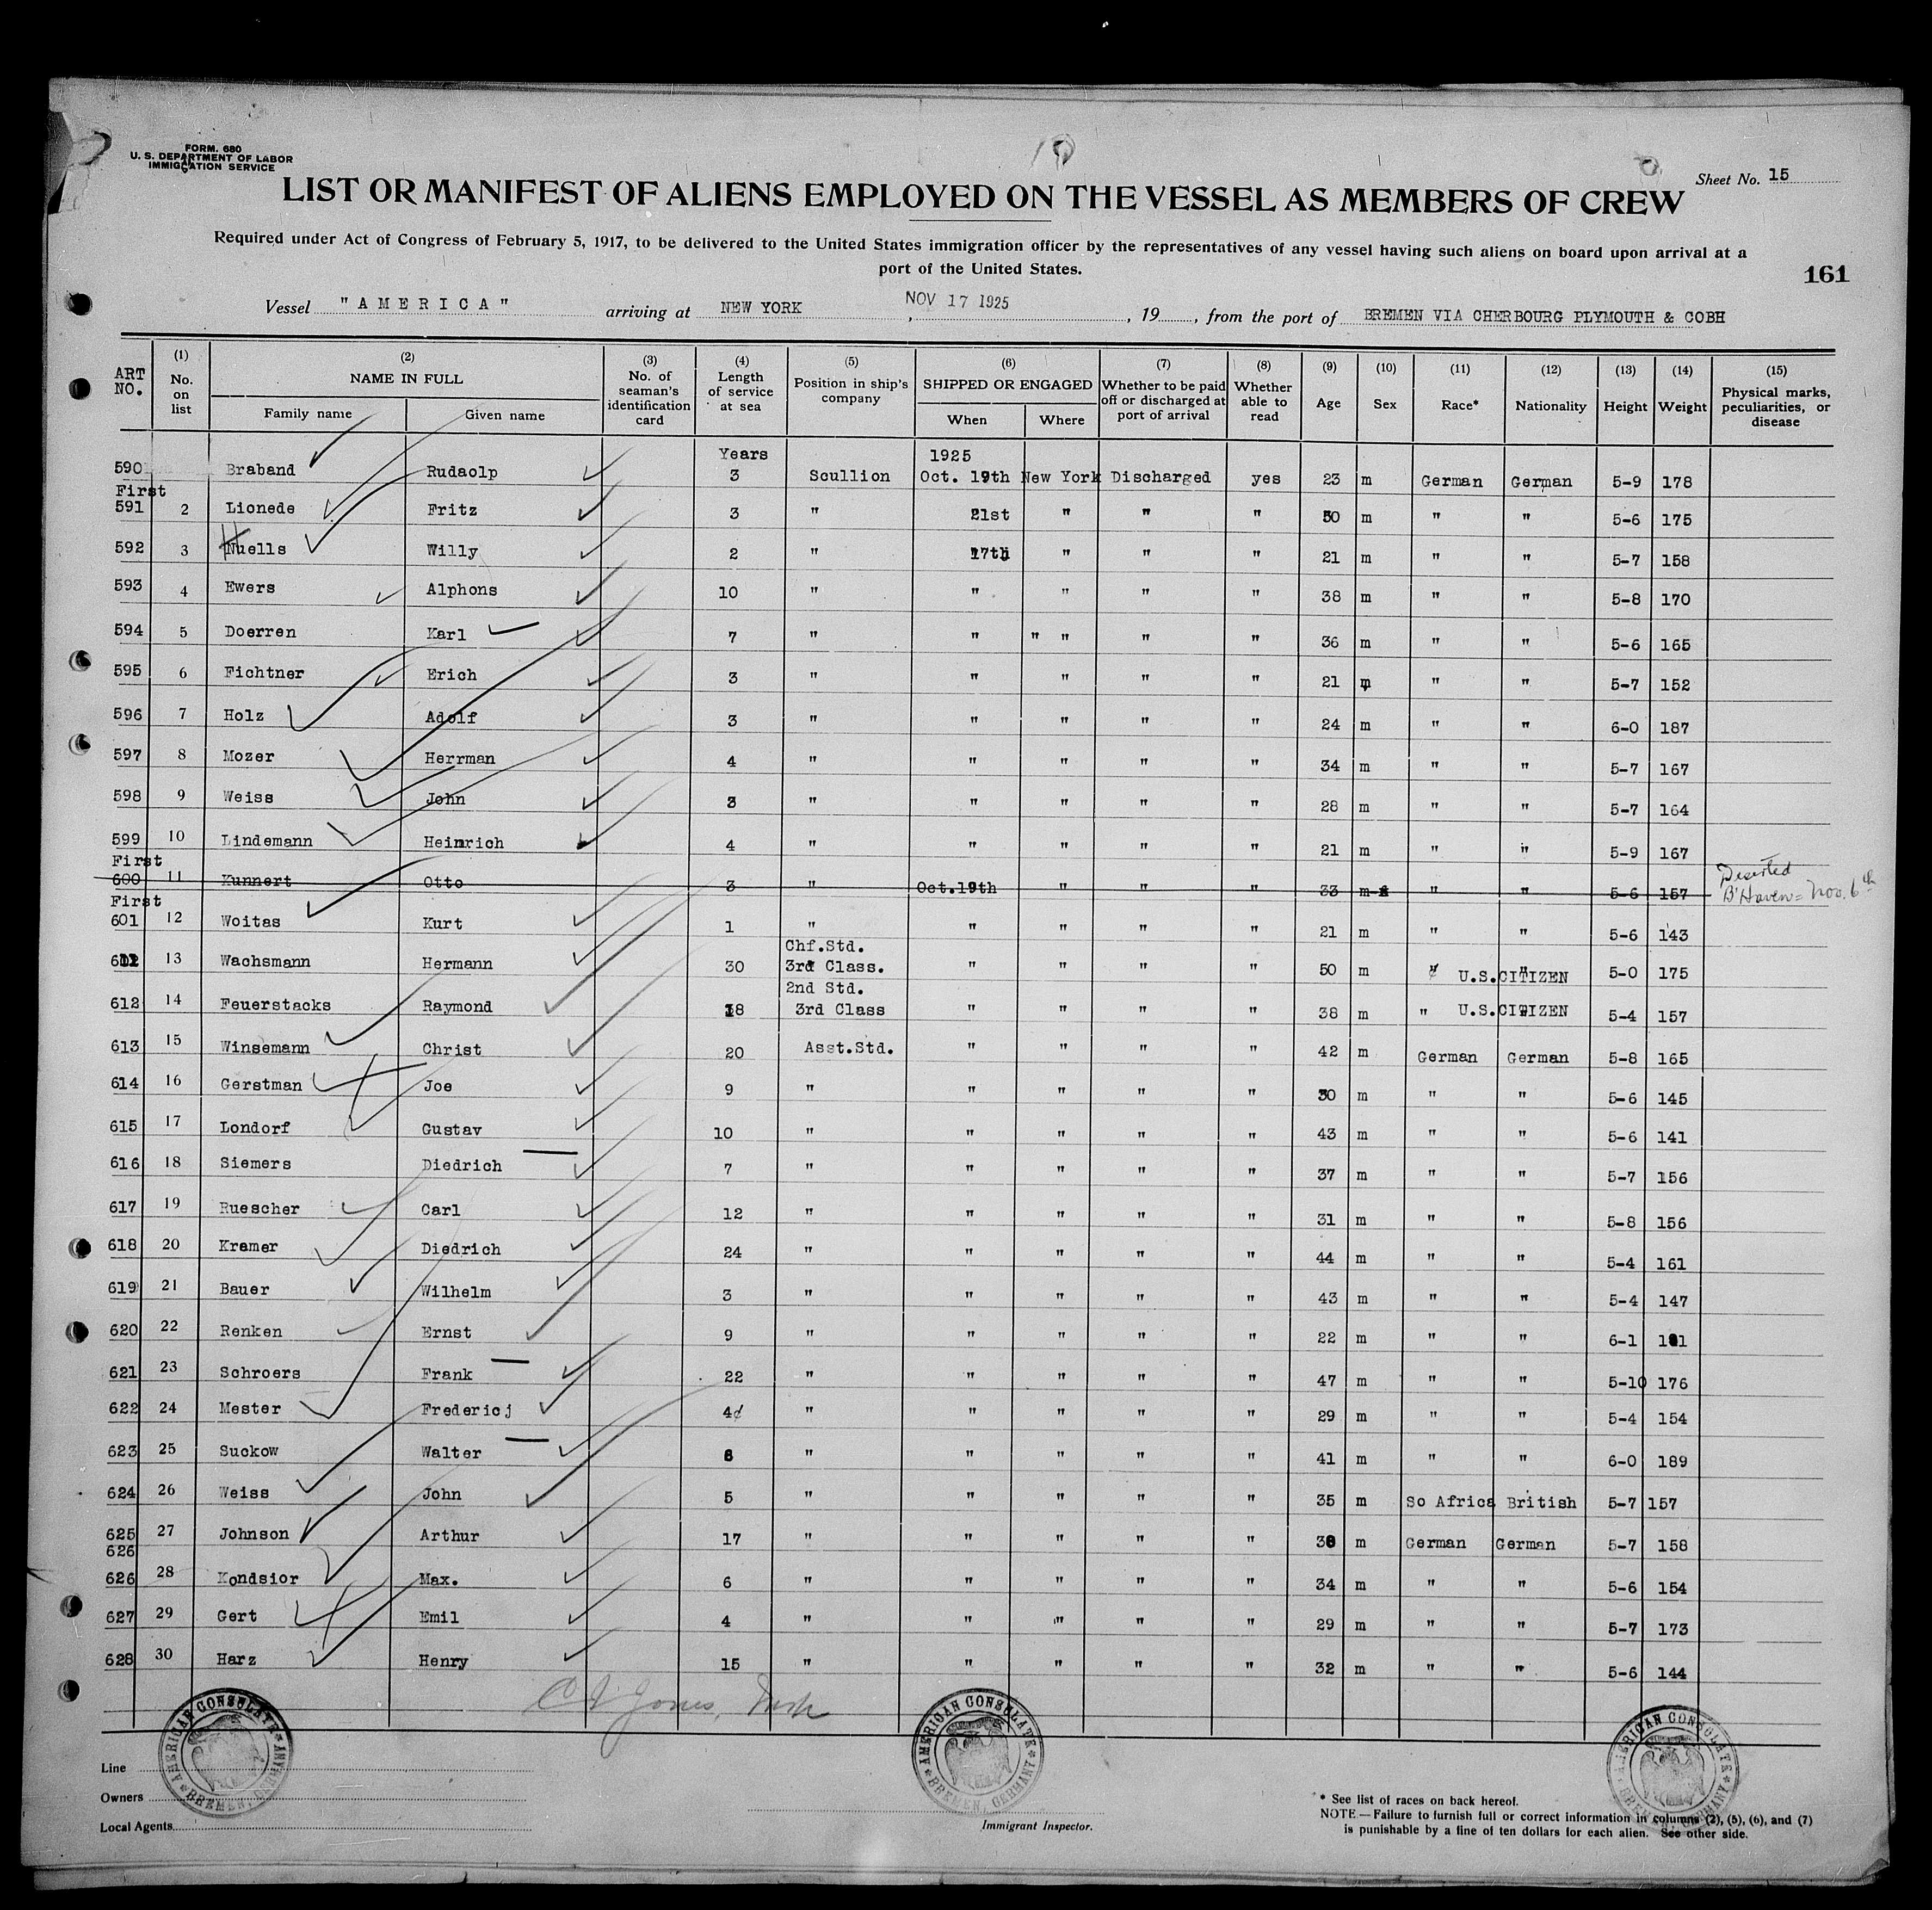 FORM. 680
U. S. DEPARTMENT OF LABOR
IMMIGRATION SERVICE
Sheet No. 15
LIST OR MANIFEST OF ALIENS EMPLOYED ON THE VESSEL AS MEMBERS OF CREW
Required under Act of Congress of February 5, 1917, to be delivered to the United States immigration officer by the representatives of any vessel having such aliens on board upon arrival at a
port of the United States.
161
Vessel "AMERICA" arriving at NEW YORK, NOV 17 1925, 19, from the port of BREMEN VIA CHERBOURG PLYMOUTH & COBH
ART NO. (1) No. on list (2) NAME IN FULL Family name Given name (3) No. of seaman's identification card (4) Length of service at sea (5) Position in ship's company (6) SHIPPED OR ENGAGED When Where (7) Whether to be paid off or discharged at port of arrival (8) Whether able to read (9) Age (10) Sex (11) Race* (12) Nationality (13) Height (14) Weight (15) Physical marks, peculiarities, or disease
Years 1925
590 Braband Rudaolp 3 Scullion Oct. 19th New York Discharged yes 23 m German German 5-9 178
First
591 2 Lionede Fritz 3 " 21st " " " 30 m " " 5-6 175
592 3 Huells Willy 2 " 17th " " " 21 m " " 5-7 158
593 4 Ewers Alphons 10 " " " " " 38 m " " 5-8 170
594 5 Doerren Karl 7 " " " " " " 36 m " " 5-6 165
595 6 Fichtner Erich 3 " " " " " 21 m " " 5-7 152
596 7 Holz Adolf 3 " " " " " 24 m " " 6-0 187
597 8 Mozer Herrman 4 " " " " " 34 m " " 5-7 167
598 9 Weiss John 3 " " " " " 28 m " " 5-7 164
599 10 Lindemann Heinrich 4 " " " " " 21 m " " 5-9 167
First
600 11 Kunnert Otto 3 " Oct.19th " " " 33 m " " 5-6 157 Deserted B'Haven = Nov. 6th
First
601 12 Woitas Kurt 1 " " " " " 21 m " " 5-6 143
13 Wachsmann Hermann 30 Chf.Std. 3rd Class. " " " " 50 m " U.S.CITIZEN 5-0 175
612 14 Feuerstacks Raymond 18 2nd Std. 3rd Class " " " " 38 m " U.S.CITIZEN 5-4 157
613 15 Winsemann Christ 20 Asst.Std. " " " " 42 m German German 5-8 165
614 16 Gerstman Joe 9 " " " " " 30 m " " 5-6 145
615 17 Londorf Gustav 10 " " " " " 43 m " " 5-6 141
616 18 Siemers Diedrich 7 " " " " " 37 m " " 5-7 156
617 19 Ruescher Carl 12 " " " " " 31 m " " 5-8 156
618 20 Kramer Diedrich 24 " " " " " 44 m " " 5-4 161
619 21 Bauer Wilhelm 3 " " " " " 43 m " " 5-4 147
620 22 Renken Ernst 9 " " " " " 22 m " " 6-1
621 23 Schroers Frank 22 " " " " " 47 m " " 5-10 176
622 24 Mester Fredericj 4 " " " " " 29 m " " 5-4 154
623 25 Suckow Walter " " " " " 41 m " " 6-0 189
624 26 Weiss John 5 " " " " " 35 m So Africa British 5-7 157
625 27 Johnson Arthur 17 " " " " " m German German 5-7 158
626
626 28 Kondsior Max. 6 " " " " " 34 m " " 5-6 154
627 29 Gert Emil 4 " " " " " 29 m " " 5-7 173
628 30 Harz Henry 15 " " " " " 32 m " " 5-6 144
Jones,
AMERICAN CONSULATE BREMEN, GERMANY
AMERICAN CONSULATE BREMEN, GERMANY
AMERICAN CONSULATE BREMEN, GERMANY
Line
Owners
Local Agents
Immigrant Inspector.
* See list of races on back hereof.
NOTE — Failure to furnish full or correct information in columns (2), (5), (6), and (7)
is punishable by a fine of ten dollars for each alien. See other side.